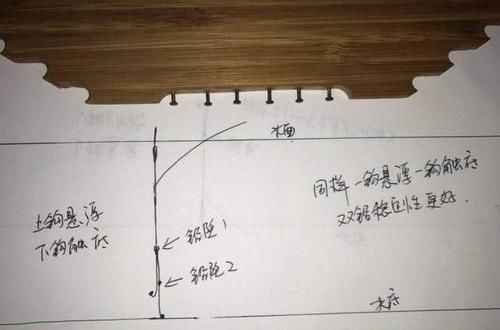 水面
同样一钩悬浮一钩触底
双铅稳固性更好.
上钩悬浮
下钩触底
铅坠1
铅坠2
水底